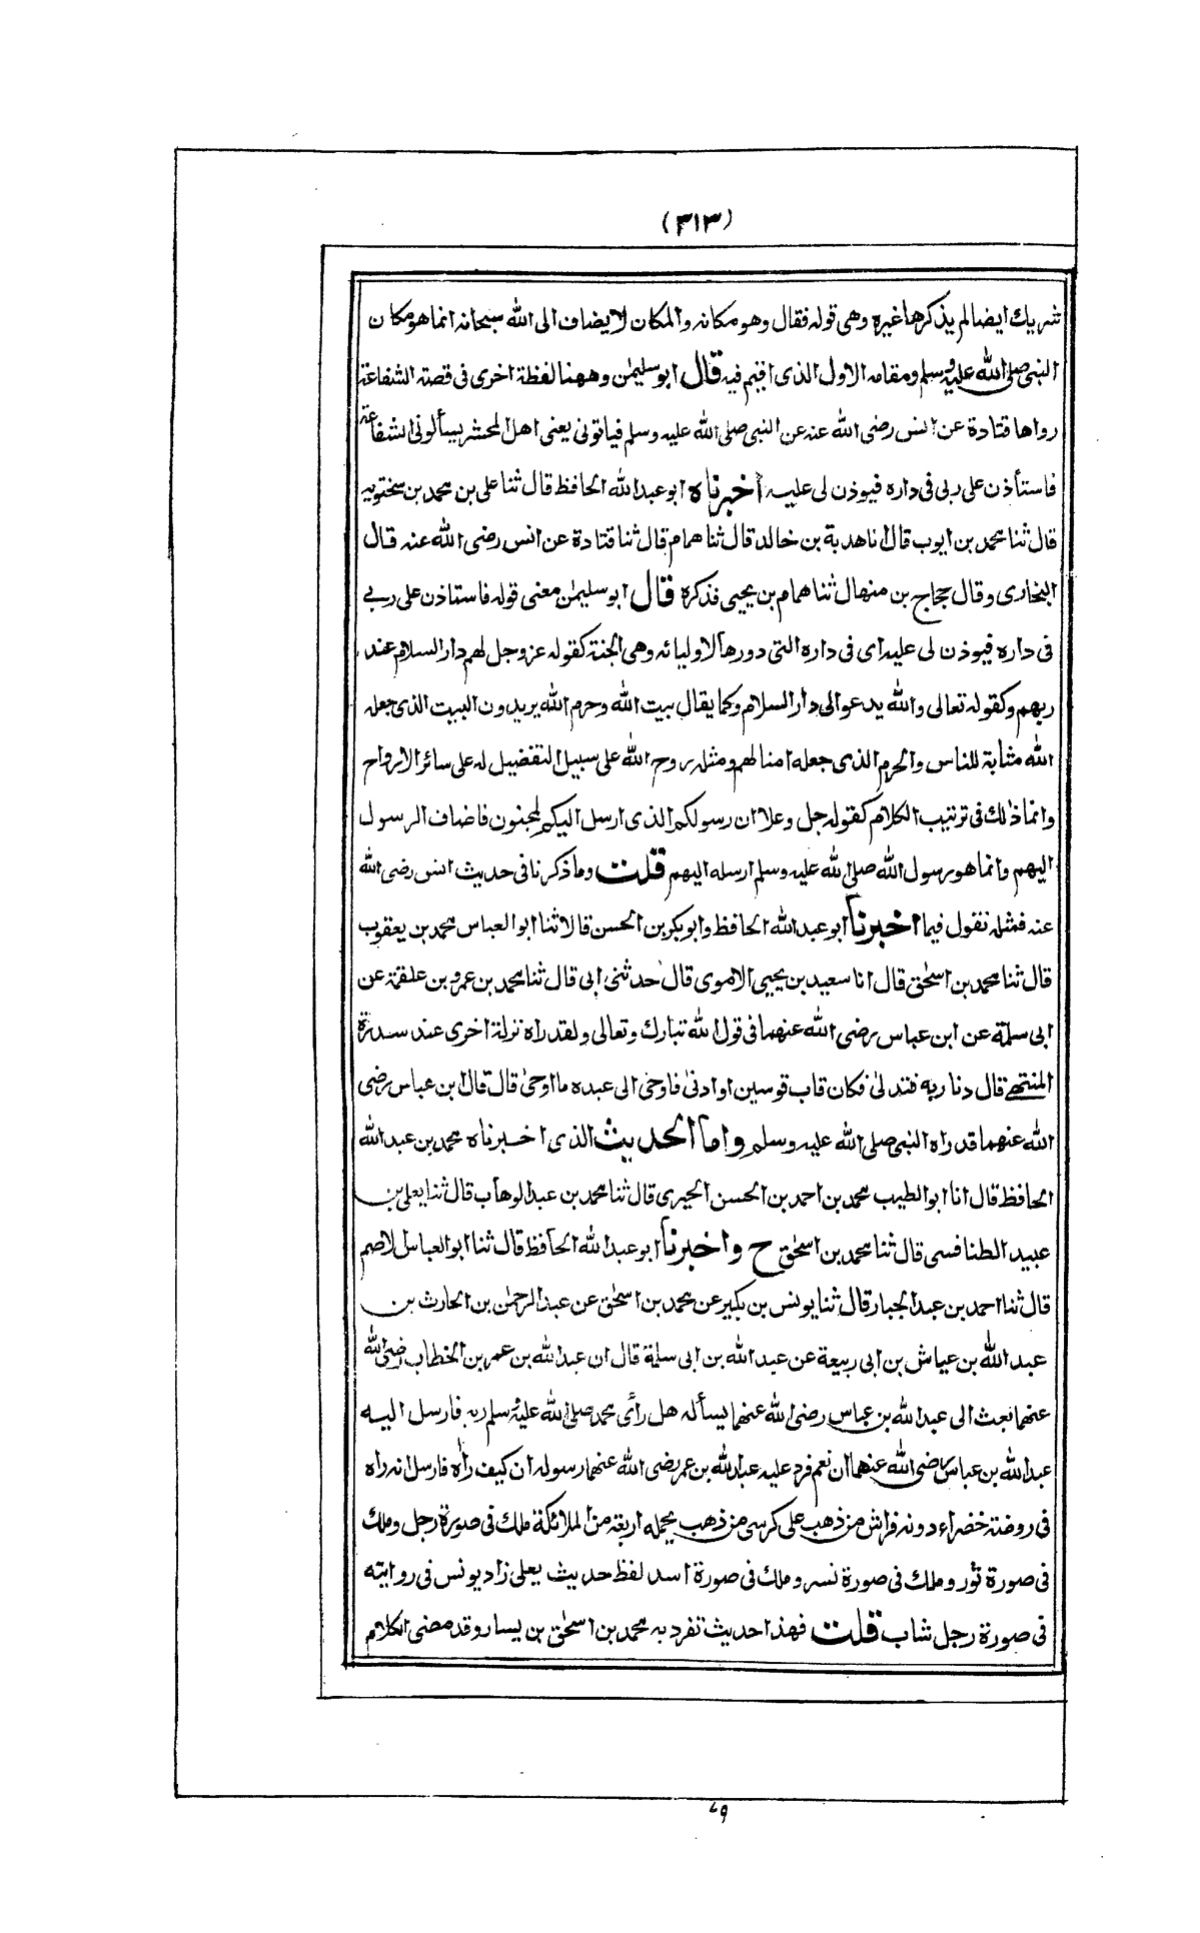 (٣١٣)
شريك ايضا لم يذكرها غيره وهى قوله فقال وهو مكانه والمكان لا يضاف الى الله سبحانه انما هو مكان
النبى صلى الله عليه وسلم ومقامه الاول الذى اقيم فيه قال ابو سليمٰن وههنا لفظة اخرى فى قصة الشفاعة
رواها قتادة عن انس رضى الله عنه عن النبى صلى الله عليه وسلم فياتونى يعنى اهل المحشر يسألونى الشفاعة
فاستأذن على ربى فى داره فيوذن لى عليه اخبرناه ابو عبد الله الحافظ قال ثنا على بن محمد بن سختويه
قال ثنا محمد بن ايوب قال انا هدبة بن خالد قال ثنا همام قال ثنا قتادة عن انس رضى الله عنه قال
البخارى وقال حجاج بن منهال ثنا همام بن يحيى فذكره قال ابو سليمٰن معنى قوله فاستاذن على ربى
فى داره فيوذن لى عليه اى فى داره التى دورها لاوليائه وهى الجنة كقوله عز وجل لهم دار السلام عند
ربهم وكقوله تعالى والله يدعو الى دار السلام وكما يقال بيت الله وحرم الله يريدون البيت الذى جعله
الله مثابة للناس والحرم الذى جعله امنا لهم ومثله روح الله على سبيل التفضيل له على سائر الارواح
وانما ذلك فى ترتيب الكلام كقوله جل وعلا ان رسولكم الذى ارسل اليكم لمجنون فاضاف الرسول
اليهم وانما هو رسول الله صلى لله عليه وسلم ارسله اليهم قلت وما ذكرنا فى حديث انس رضى الله
عنه فمثله نقول فيما اخبرنا ابو عبد الله الحافظ وابو بكر بن الحسن قالا ثنا ابو العباس محمد بن يعقوب
قال ثنا محمد بن اسحٰق قال انا سعيد بن يحيى الاموى قال حدثنى ابى قال ثنا محمد بن عمرو بن علقمة عن
ابى سلمة عن ابن عباس رضى الله عنهما فى قول لله تبارك وتعالى ولقد راه نزلة اخرى عند سدرة
المنتهى قال دنا ربه فتدلىٰ فكان قاب قوسين او ادنىٰ فاوحىٰ الى عبده ما اوحىٰ قال قال ابن عباس رضى
الله عنهما قد راه النبى صلى الله عليه وسلم واما الحديث الذى اخبرناه محمد بن عبد الله
الحافظ قال انا ابو الطيب محمد بن احمد بن الحسن الحيرى قال ثنا محمد بن عبد الوهاب قال ثنا يعلى بن
عبيد الطنافسى قال ثنا محمد بن اسحٰق ح واخبرنا ابو عبد الله الحافظ قال ثنا ابو العباس الاصم
قال ثنا احمد بن عبد الجبار قال ثنا يونس بن بكير عن محمد بن اسحٰق عن عبد الرحمٰن بن الحارث بن
عبد الله بن عياش بن ابى ربيعة عن عبد الله بن ابى سلمة قال ان عبد الله بن عمر بن الخطاب رضى الله
عنهما بعث الى عبد الله بن عباس رضى الله عنهما يسأله هل رأى محمد صلى الله عليه وسلم ربه فارسل اليه
عبد الله بن عباس رضى الله عنهما ان نعم فرد عليه عبد لله بن عمر رضى الله عنهما رسوله ان كيف راه فارسل انه راه
فى روضة خضراء دونه فراش من ذهب على كرسى من ذهب يحمله اربعة من الملائكة ملك فى صورة رجل وملك
فى صورة ثور وملك فى صورة نسر وملك فى صورة اسد لفظ حديث يعلى زاد يونس فى روايته
فى صورة رجل شاب قلت فهذا حديث تفرد به محمد بن اسحٰق بن يسار وقد مضى الكلام